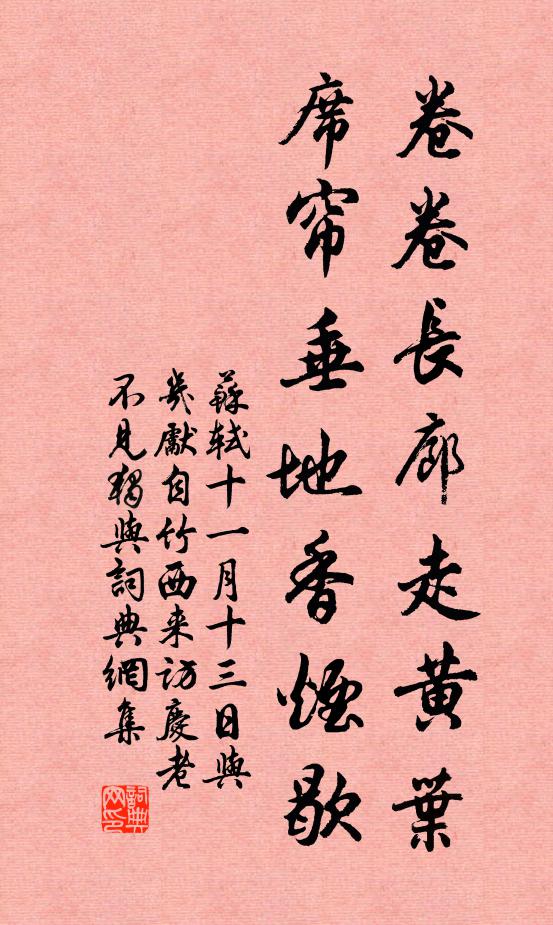 卷卷長廊走黄葉
席帘垂地香煙歇
蘇軾十一月十三日與
幾獻自竹西来訪慶老
不見獨與詞典網集
詞典网印